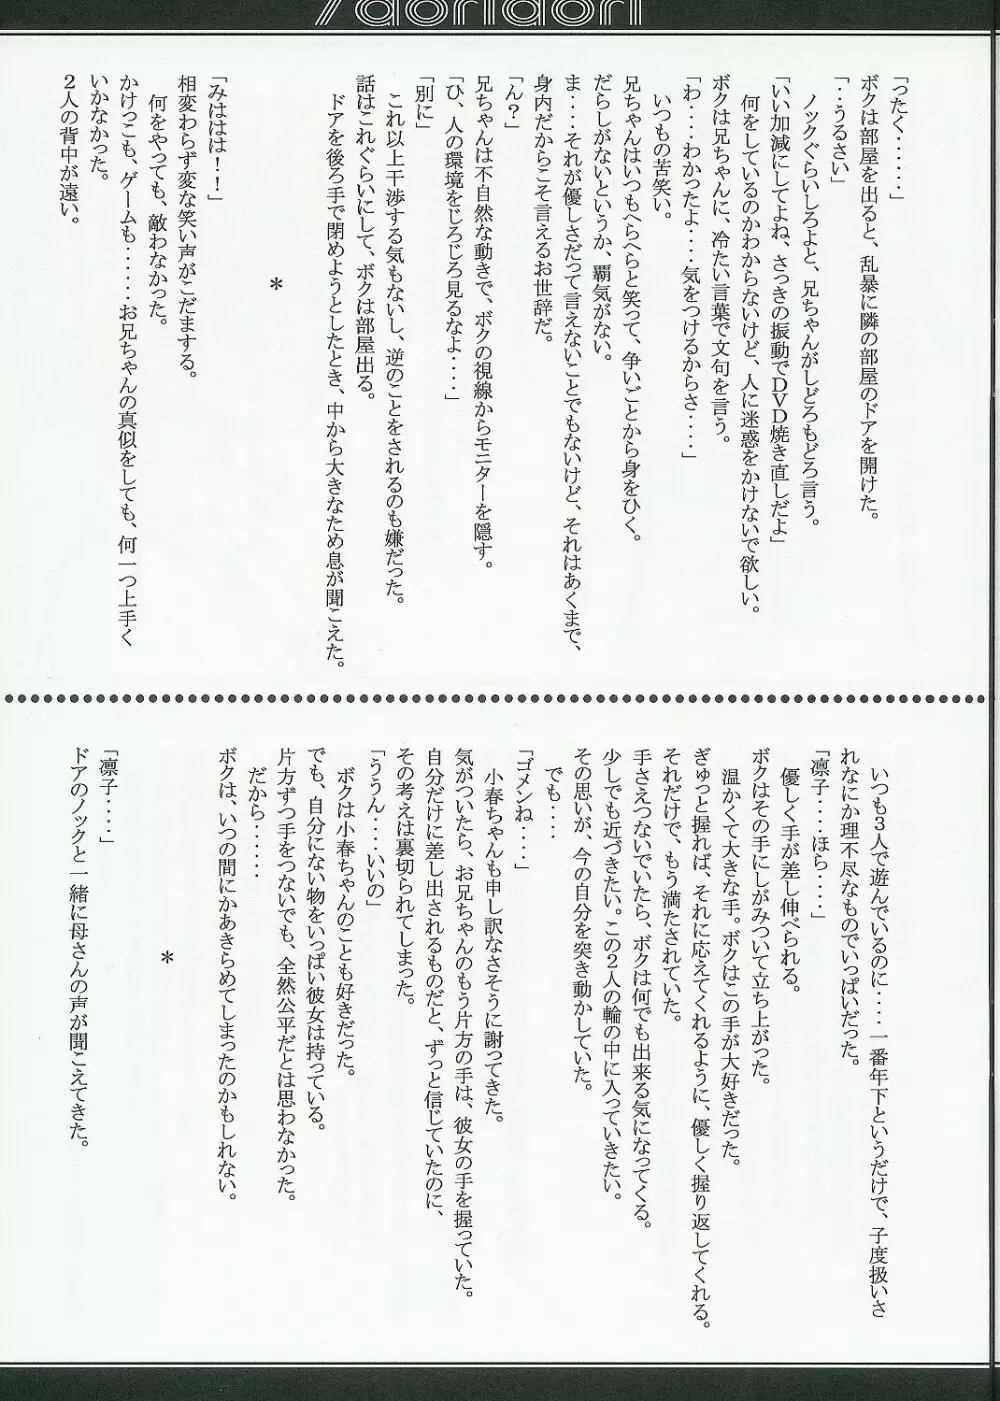 「ったく‥‥‥」
ボクは部屋を出ると、乱暴に隣の部屋のドアを開けた。
「‥うるさい」
ノックぐらいしろよと、兄ちゃんがしどろもどろ言う。
「いい加減にしてよね、さっきの振動でDVD焼き直しだよ」
何をしているのかわからないけど、人に迷惑をかけないで欲しい。
ボクは兄ちゃんに、冷たい言葉で文句を言う。
「わ‥‥わかったよ‥‥気をつけるからさ‥‥」
いつもの苦笑い。
兄ちゃんはいつもへらへらと笑って、争いごとから身をひく。
だらしがないというか、覇気がない。
ま‥‥それが優しさだって言えないことでもないけど、それはあくまで、
身内だからこそ言えるお世辞だ。
「ん？」
兄ちゃんは不自然な動きで、ボクの視線からモニターを隠す。
「ひ、人の環境をじろじろ見るなよ‥‥」
「別に」
これ以上干渉する気もないし、逆のことをされるのも嫌だった。
話はこれぐらいにして、ボクは部屋出る。
ドアを後ろ手で閉めようとしたとき、中から大きなため息が聞こえた。
＊
「みははは！！」
相変わらず変な笑い声がこだまする。
何をやっても、敵わなかった。
かけっこも、ゲームも‥‥‥お兄ちゃんの真似をしても、何一つ上手く
いかなかった。
２人の背中が遠い。
いつも３人で遊んでいるのに‥‥一番年下というだけで、子度扱いさ
れなにか理不尽なものでいっぱいだった。
「凛子‥‥ほら‥‥」
優しく手が差し伸べられる。
ボクはその手にしがみついて立ち上がった。
温かくて大きな手。ボクはこの手が大好きだった。
ぎゅっと握れば、それに応えてくれるように、優しく握り返してくれる。
それだけで、もう満たされていた。
手さえつないでいたら、ボクは何でも出来る気になってくる。
少しでも近づきたい。この２人の輪の中に入っていきたい。
その思いが、今の自分を突き動かしていた。
でも‥‥
「ゴメンね‥‥」
小春ちゃんも申し訳なさそうに謝ってきた。
気がついたら、お兄ちゃんのもう片方の手は、彼女の手を握っていた。
自分だけに差し出されるものだと、ずっと信じていたのに、
その考えは裏切られてしまった。
「ううん‥‥いいの」
ボクは小春ちゃんのことも好きだった。
でも、自分にない物をいっぱい彼女は持っている。
片方ずつ手をつないでも、全然公平だとは思わなかった。
だから‥‥‥
ボクは、いつの間にかあきらめてしまったのかもしれない。
＊
「凛子‥‥」
ドアのノックと一緒に母さんの声が聞こえてきた。